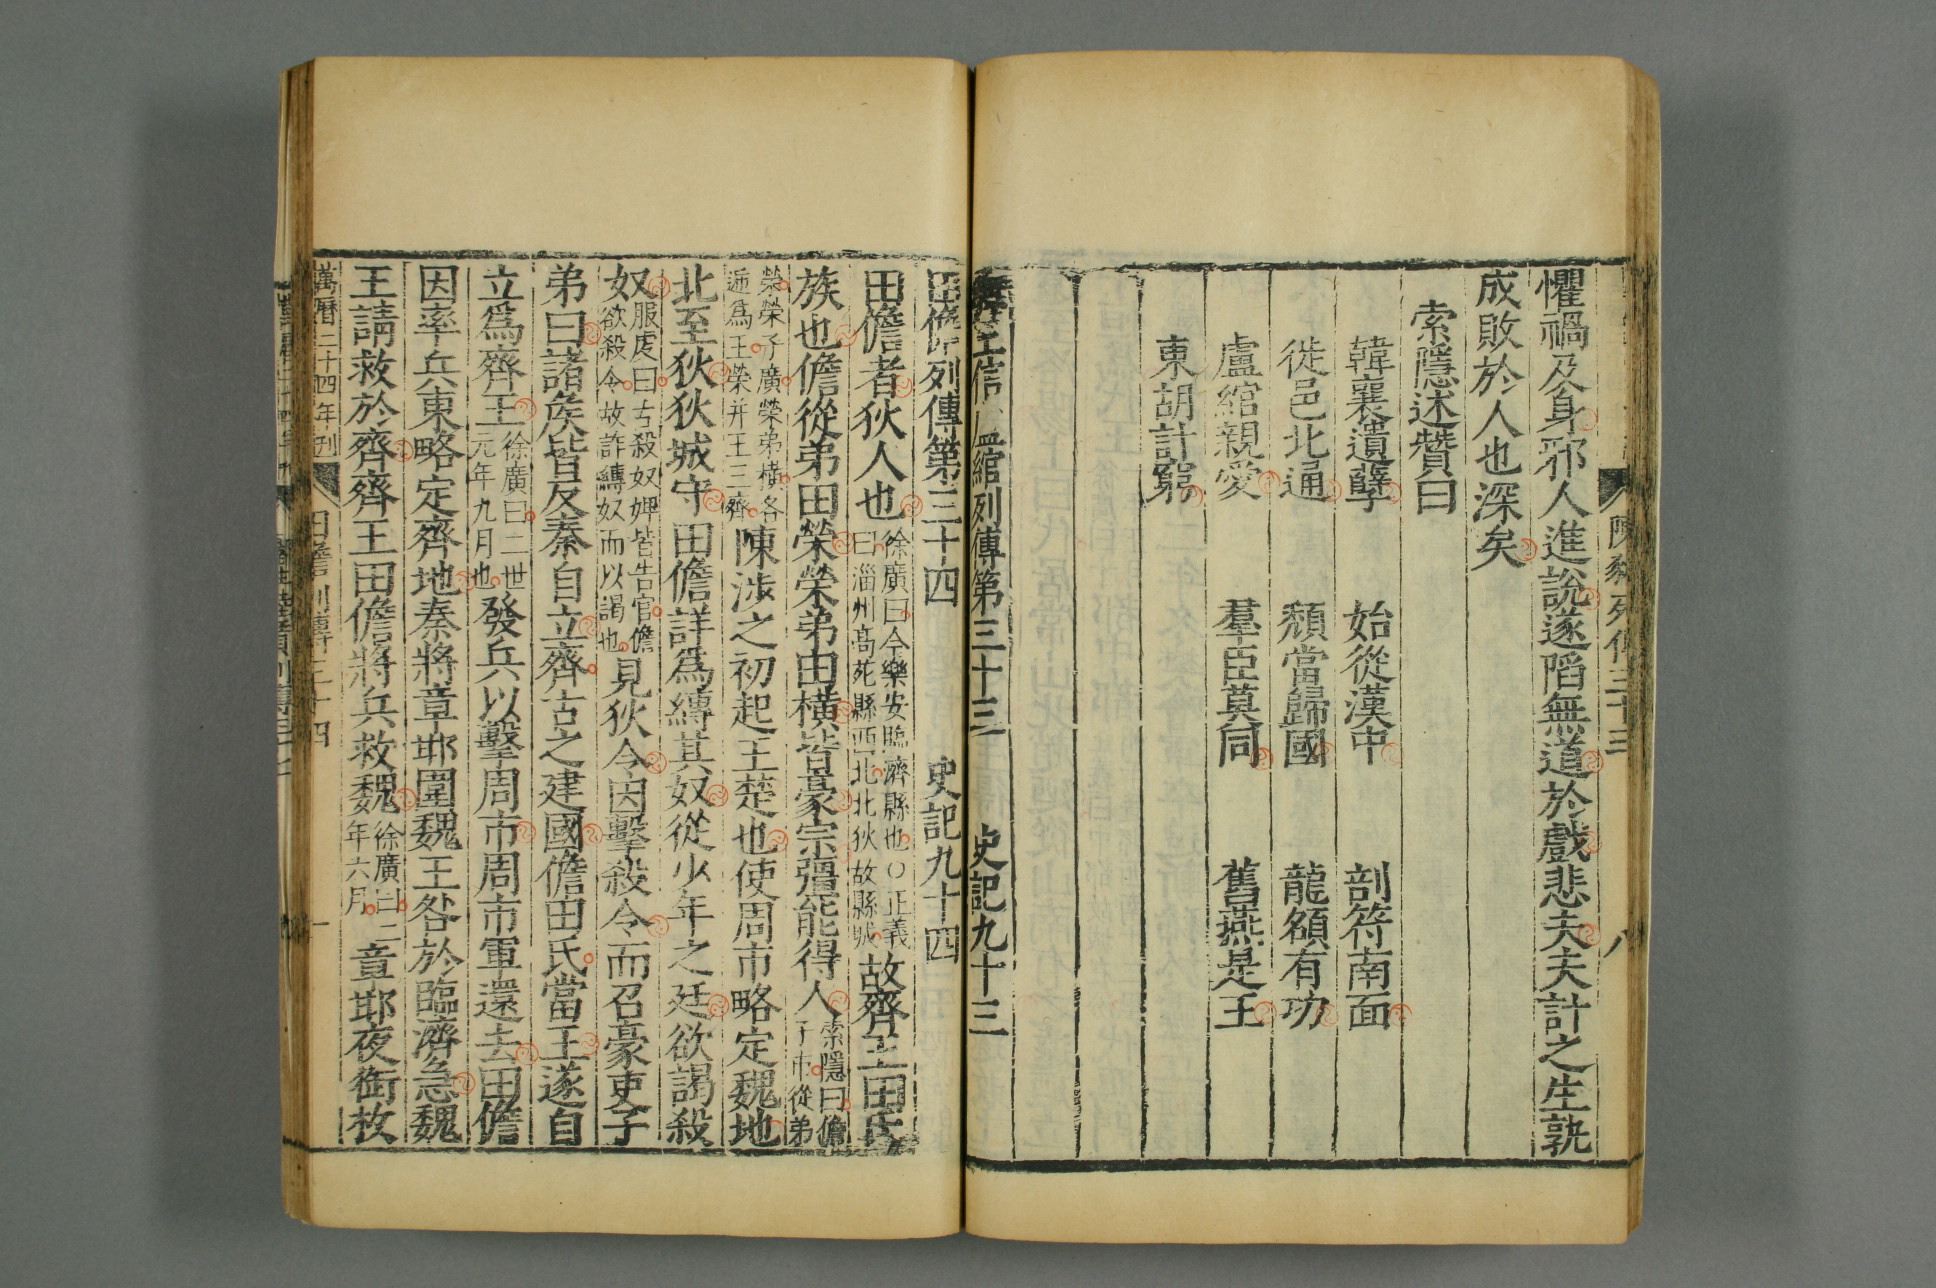 陳豨列傳三十三
八
懼禍及身邪人進說遂陷無道於戲悲夫夫計之生孰
成敗於人也深矣
索隱述贊曰
韓襄遺孽 始從漢中 剖符南面
徙邑北通 頹當歸國 龍頟有功
盧綰親愛 羣臣莫同 舊燕是王
東胡計窮
信 綰列傳第三十三 史記九十三
田儋列傳第三十四 史記九十四
田儋者狄人也
徐廣曰今樂安臨濟縣也○正義
曰淄州高苑縣西北北狄故縣城
故齊王田氏
族也儋從弟田榮榮弟田橫皆豪宗彊能得人
索隱曰儋
子市從弟
榮榮子廣榮弟橫各
遞爲王榮并王三齊
陳涉之初起王楚也使周市略定魏地
北至狄狄城守田儋詳爲縛其奴從少年之廷欲謁殺
奴
服虔曰古殺奴婢皆告官儋
欲殺令故詐縛奴而以謁也
見狄令因擊殺令而召豪吏子
弟曰諸矦皆反秦自立齊古之建國儋田氏當王遂自
立爲齊王
徐廣曰二世
元年九月也
發兵以擊周市周市軍還去田儋
因率兵東略定齊地秦將章邯圍魏王咎於臨濟急魏
王請救於齊齊王田儋將兵救魏
徐廣曰二
年六月
章邯夜銜枚
萬曆二十四年刊
田儋列傳三十四
一